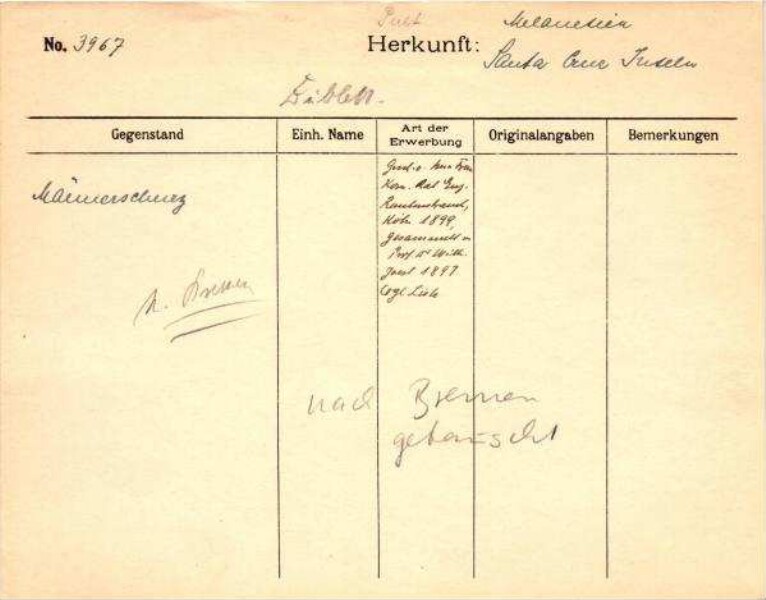 Pult
Melanesien
No. 3967 Herkunft: Santa Cruz Inseln
Dublett.
Gegenstand Einh. Name Art der Erwerbung Originalangaben Bemerkungen
Männerschurz
Gesch. v. Frau
Kom. Rat Eug.
Rautenstrauch,
Köln 1899,
Gesammelt v.
Prof. Dr Wilh.
Joest 1897
Vgl Liste
n. Bremen
nach Bremen
getauscht